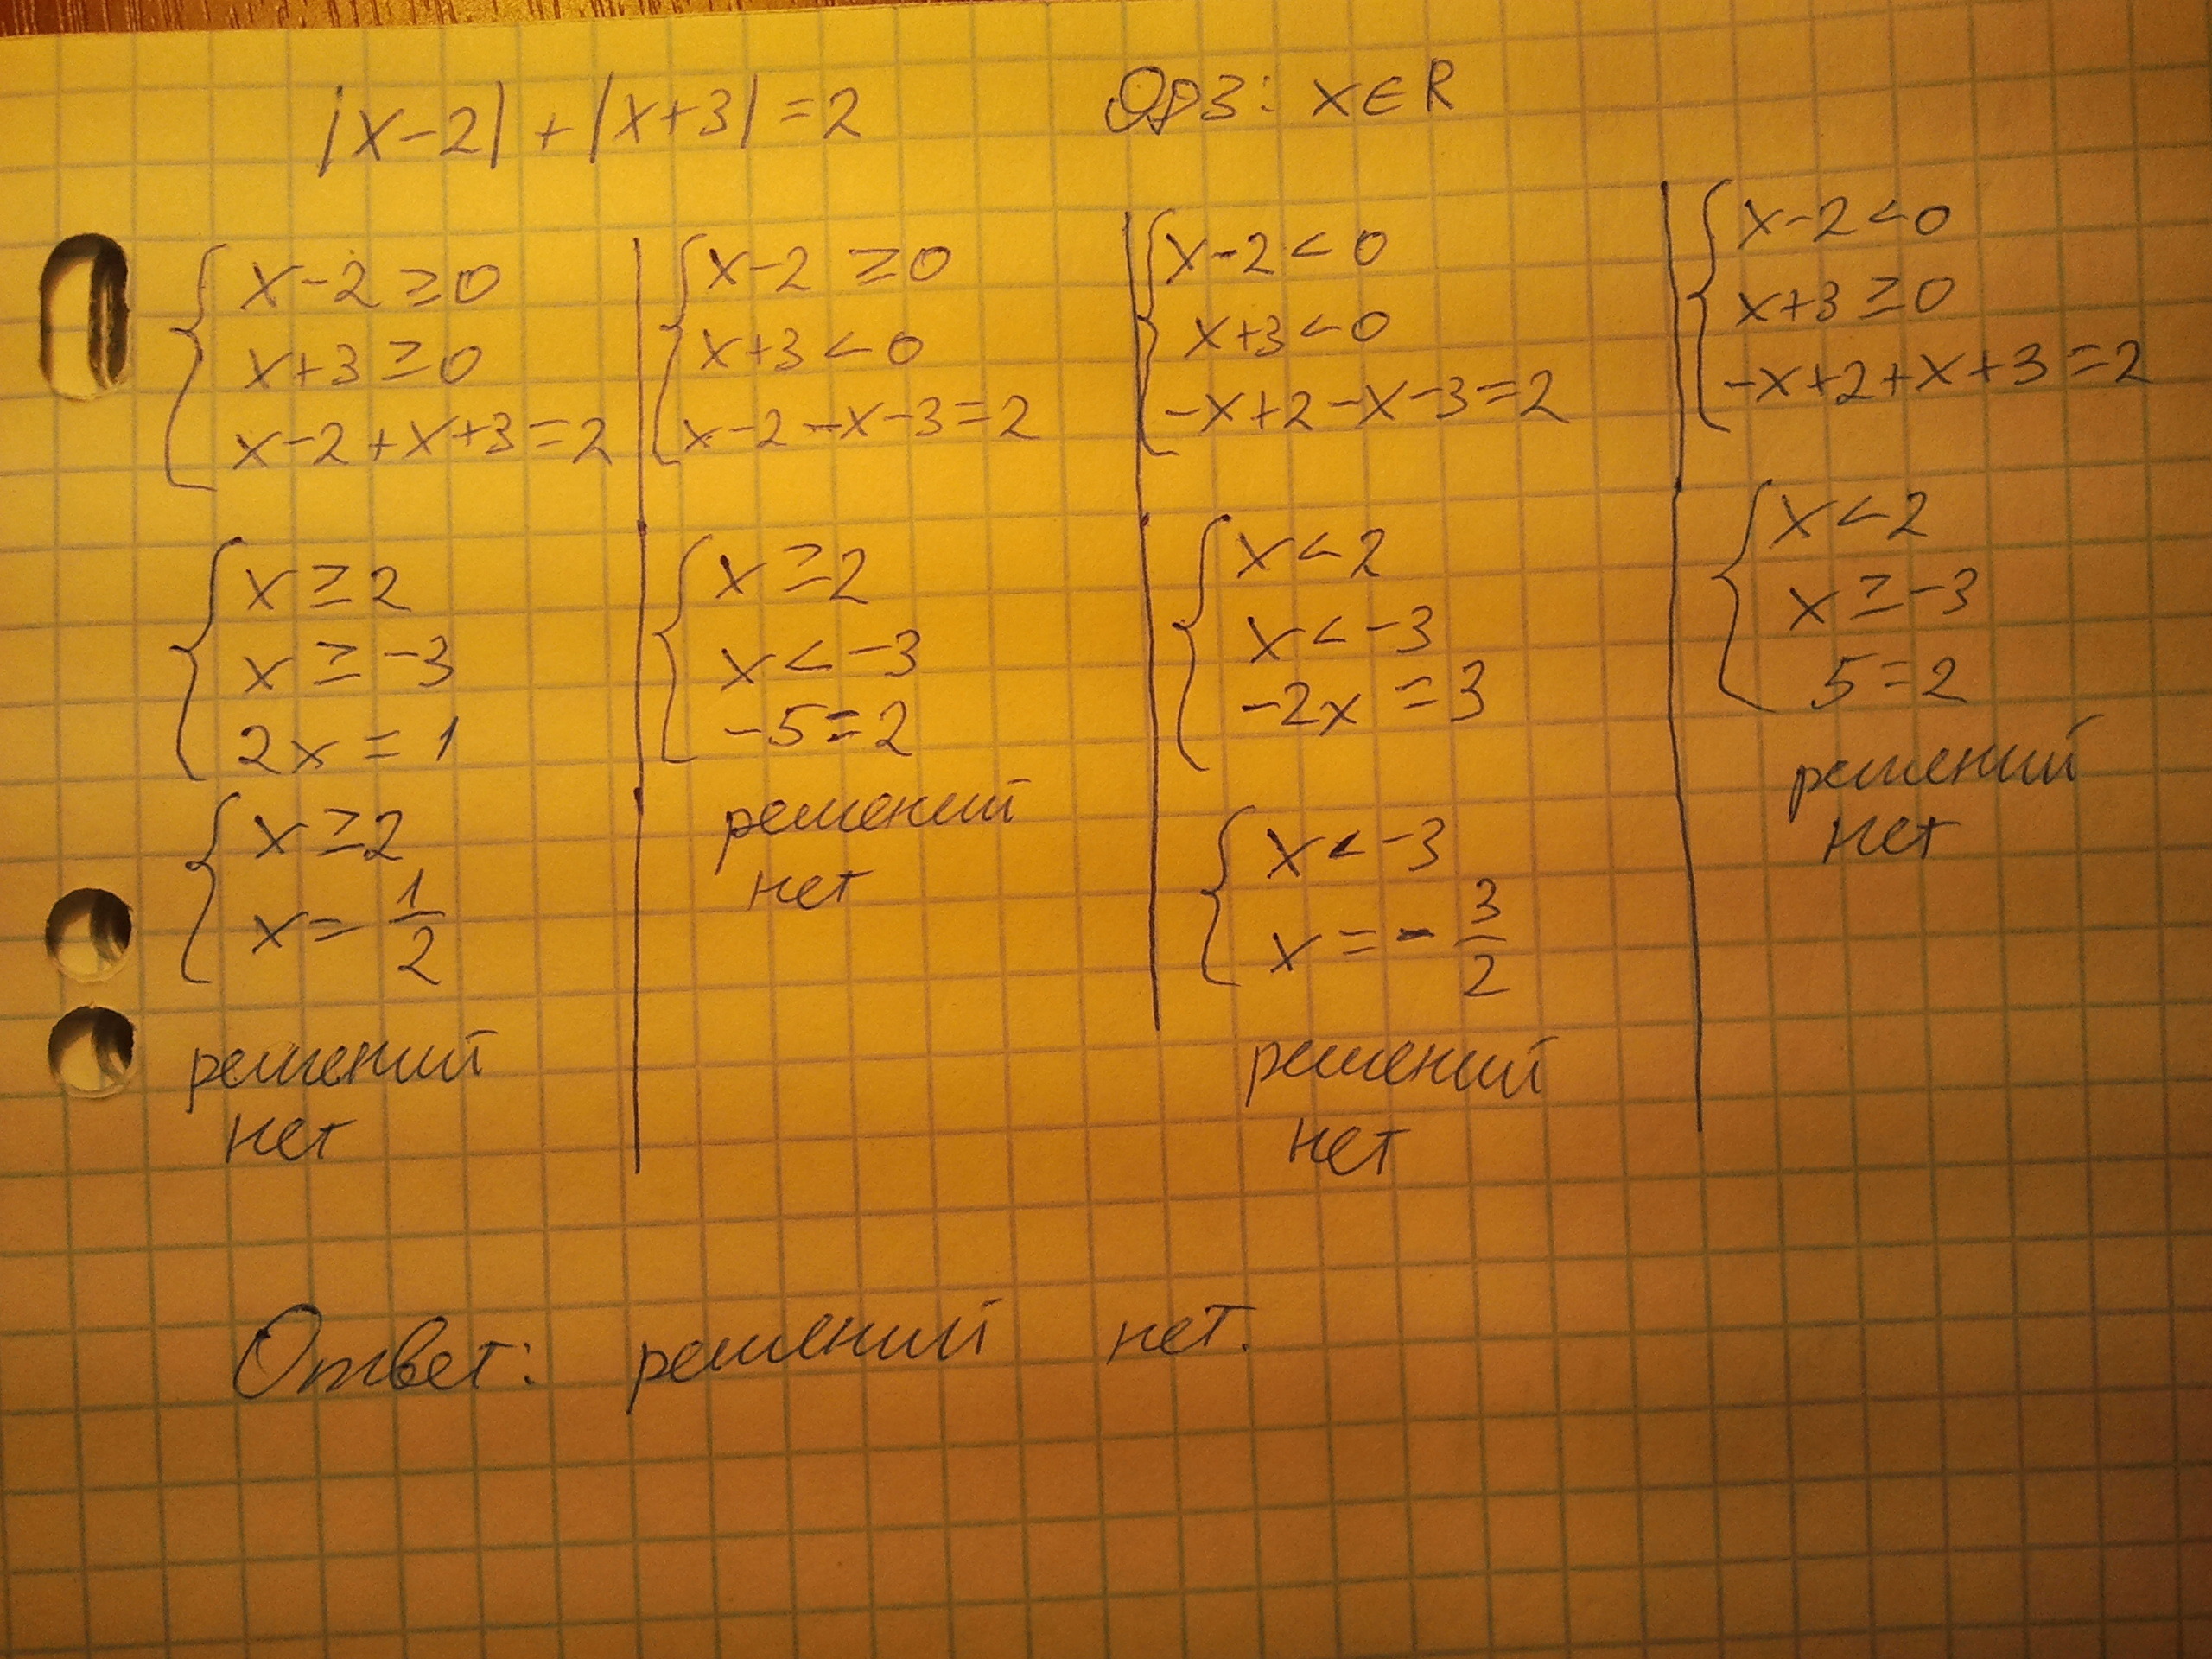 |x-2| + |x+3| = 2
ОДЗ: x∈R
x-2 ≥ 0
x+3 ≥ 0
x-2+x+3=2
x ≥ 2
x ≥ -3
2x = 1
x ≥ 2
x = 1/2
решений
нет
x-2 ≥ 0
x+3 < 0
x-2-x-3=2
x ≥ 2
x < -3
-5=2
решений
нет
x-2 < 0
x+3 < 0
-x+2-x-3=2
x < 2
x < -3
-2x = 3
x < -3
x = -3/2
решений
нет
x-2 < 0
x+3 ≥ 0
-x+2+x+3=2
x < 2
x ≥ -3
5=2
решений
нет
Ответ: решений нет.